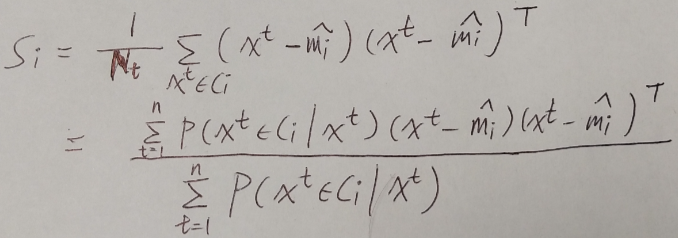 Si = 1/Nt Σ_{x^t∈Ci} (x^t - m̂i)(x^t - m̂i)^T
= Σ_{t=1}^{n} P(x^t∈Ci|x^t)(x^t - m̂i)(x^t - m̂i)^T / Σ_{t=1}^{n} P(x^t∈Ci|x^t)